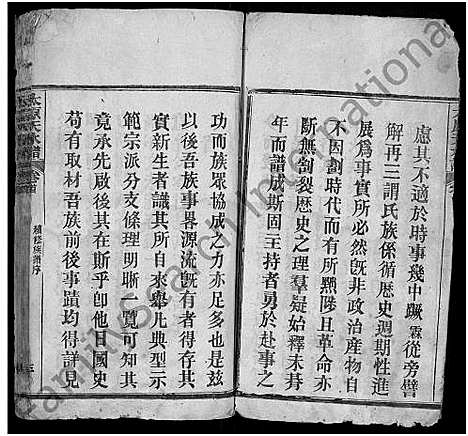 慮其不適於時事幾中蹶霖從旁譬
解再三謂氏族係循歷史週期性進
展爲事實所必然旣非政治產物自
不因劃時代而有所黜陟且革命亦
斷無割裂歷史之理羣疑始釋未朞
年而譜成斯固主持者勇於赴事之
功而族眾協成之力亦足多也是玆
以後吾族事畧源流旣有者得存其
實新生者識其所自來舉凡典型示
範宗派分支條理明晰一覽可知其
竟承先啟後者其在斯乎卽他日國史
苟有取材吾族前後事蹟均得詳見
太原
氏家譜
卷首
續修族譜序
FamilySearch International